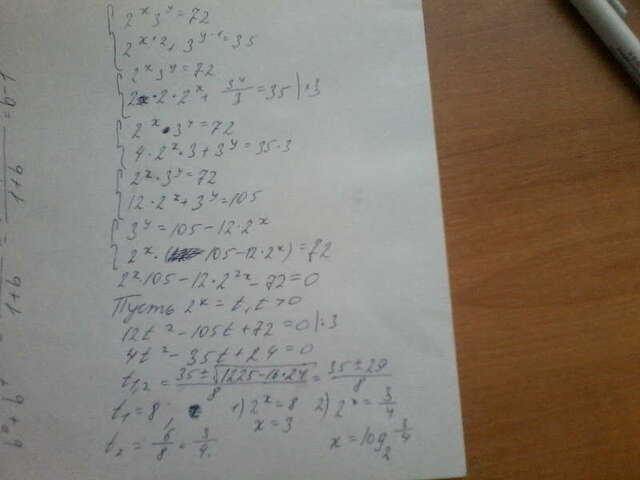 2^x 3^y = 72
2^{x+2} + 3^{y-1} = 35
2^x 3^y = 72
2 · 2 · 2^x + 3^y/3 = 35 | · 3
2^x · 3^y = 72
4 · 2^x · 3 + 3^y = 35 · 3
2^x · 3^y = 72
12 · 2^x + 3^y = 105
3^y = 105 - 12 · 2^x
2^x · (105 - 12 · 2^x) = 72
2^x 105 - 12 · 2^{2x} - 72 = 0
Пусть 2^x = t, t > 0
12t^2 - 105t + 72 = 0 | : 3
4t^2 - 35t + 24 = 0
t_{1,2} = (35 ± √(1225 - 16 · 24))/8 = (35 ± 29)/8
t_1 = 8, 1) 2^x = 8 2) 2^x = 3/4
x = 3
t_2 = 6/8 = 3/4. x = log_2 3/4